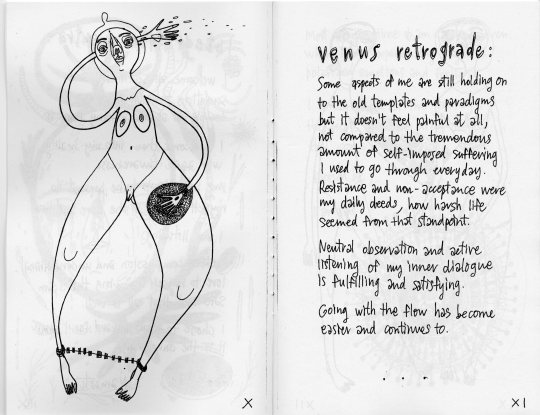 X
venus retrograde:
Some aspects of me are still holding on
to the old templates and paradigms
but it doesn't feel painful at all,
not compared to the tremendous
amount of self-imposed suffering
I used to go through everyday.
Resistance and non-acceptance were
my daily deeds, how harsh life
seemed from that standpoint.
Neutral observation and active
listening of my inner dialogue
is fulfilling and satisfying.
Going with the flow has become
easier and continues to.
. . .
XI